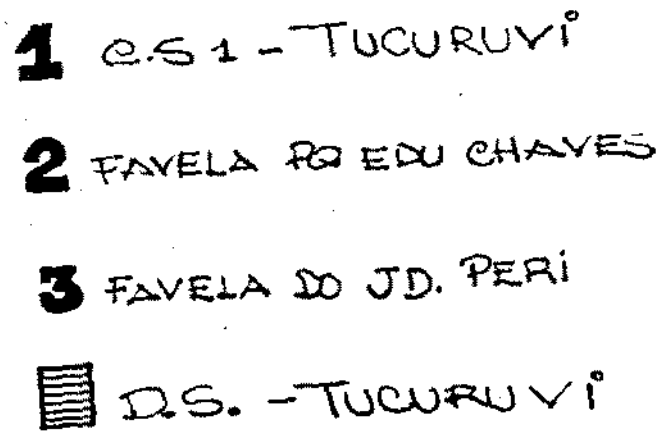 1 C.S 1 - TUCURUVI
2 FAVELA PQ EDU CHAVES
3 FAVELA DO JD. PERI
D.S. - TUCURUVI